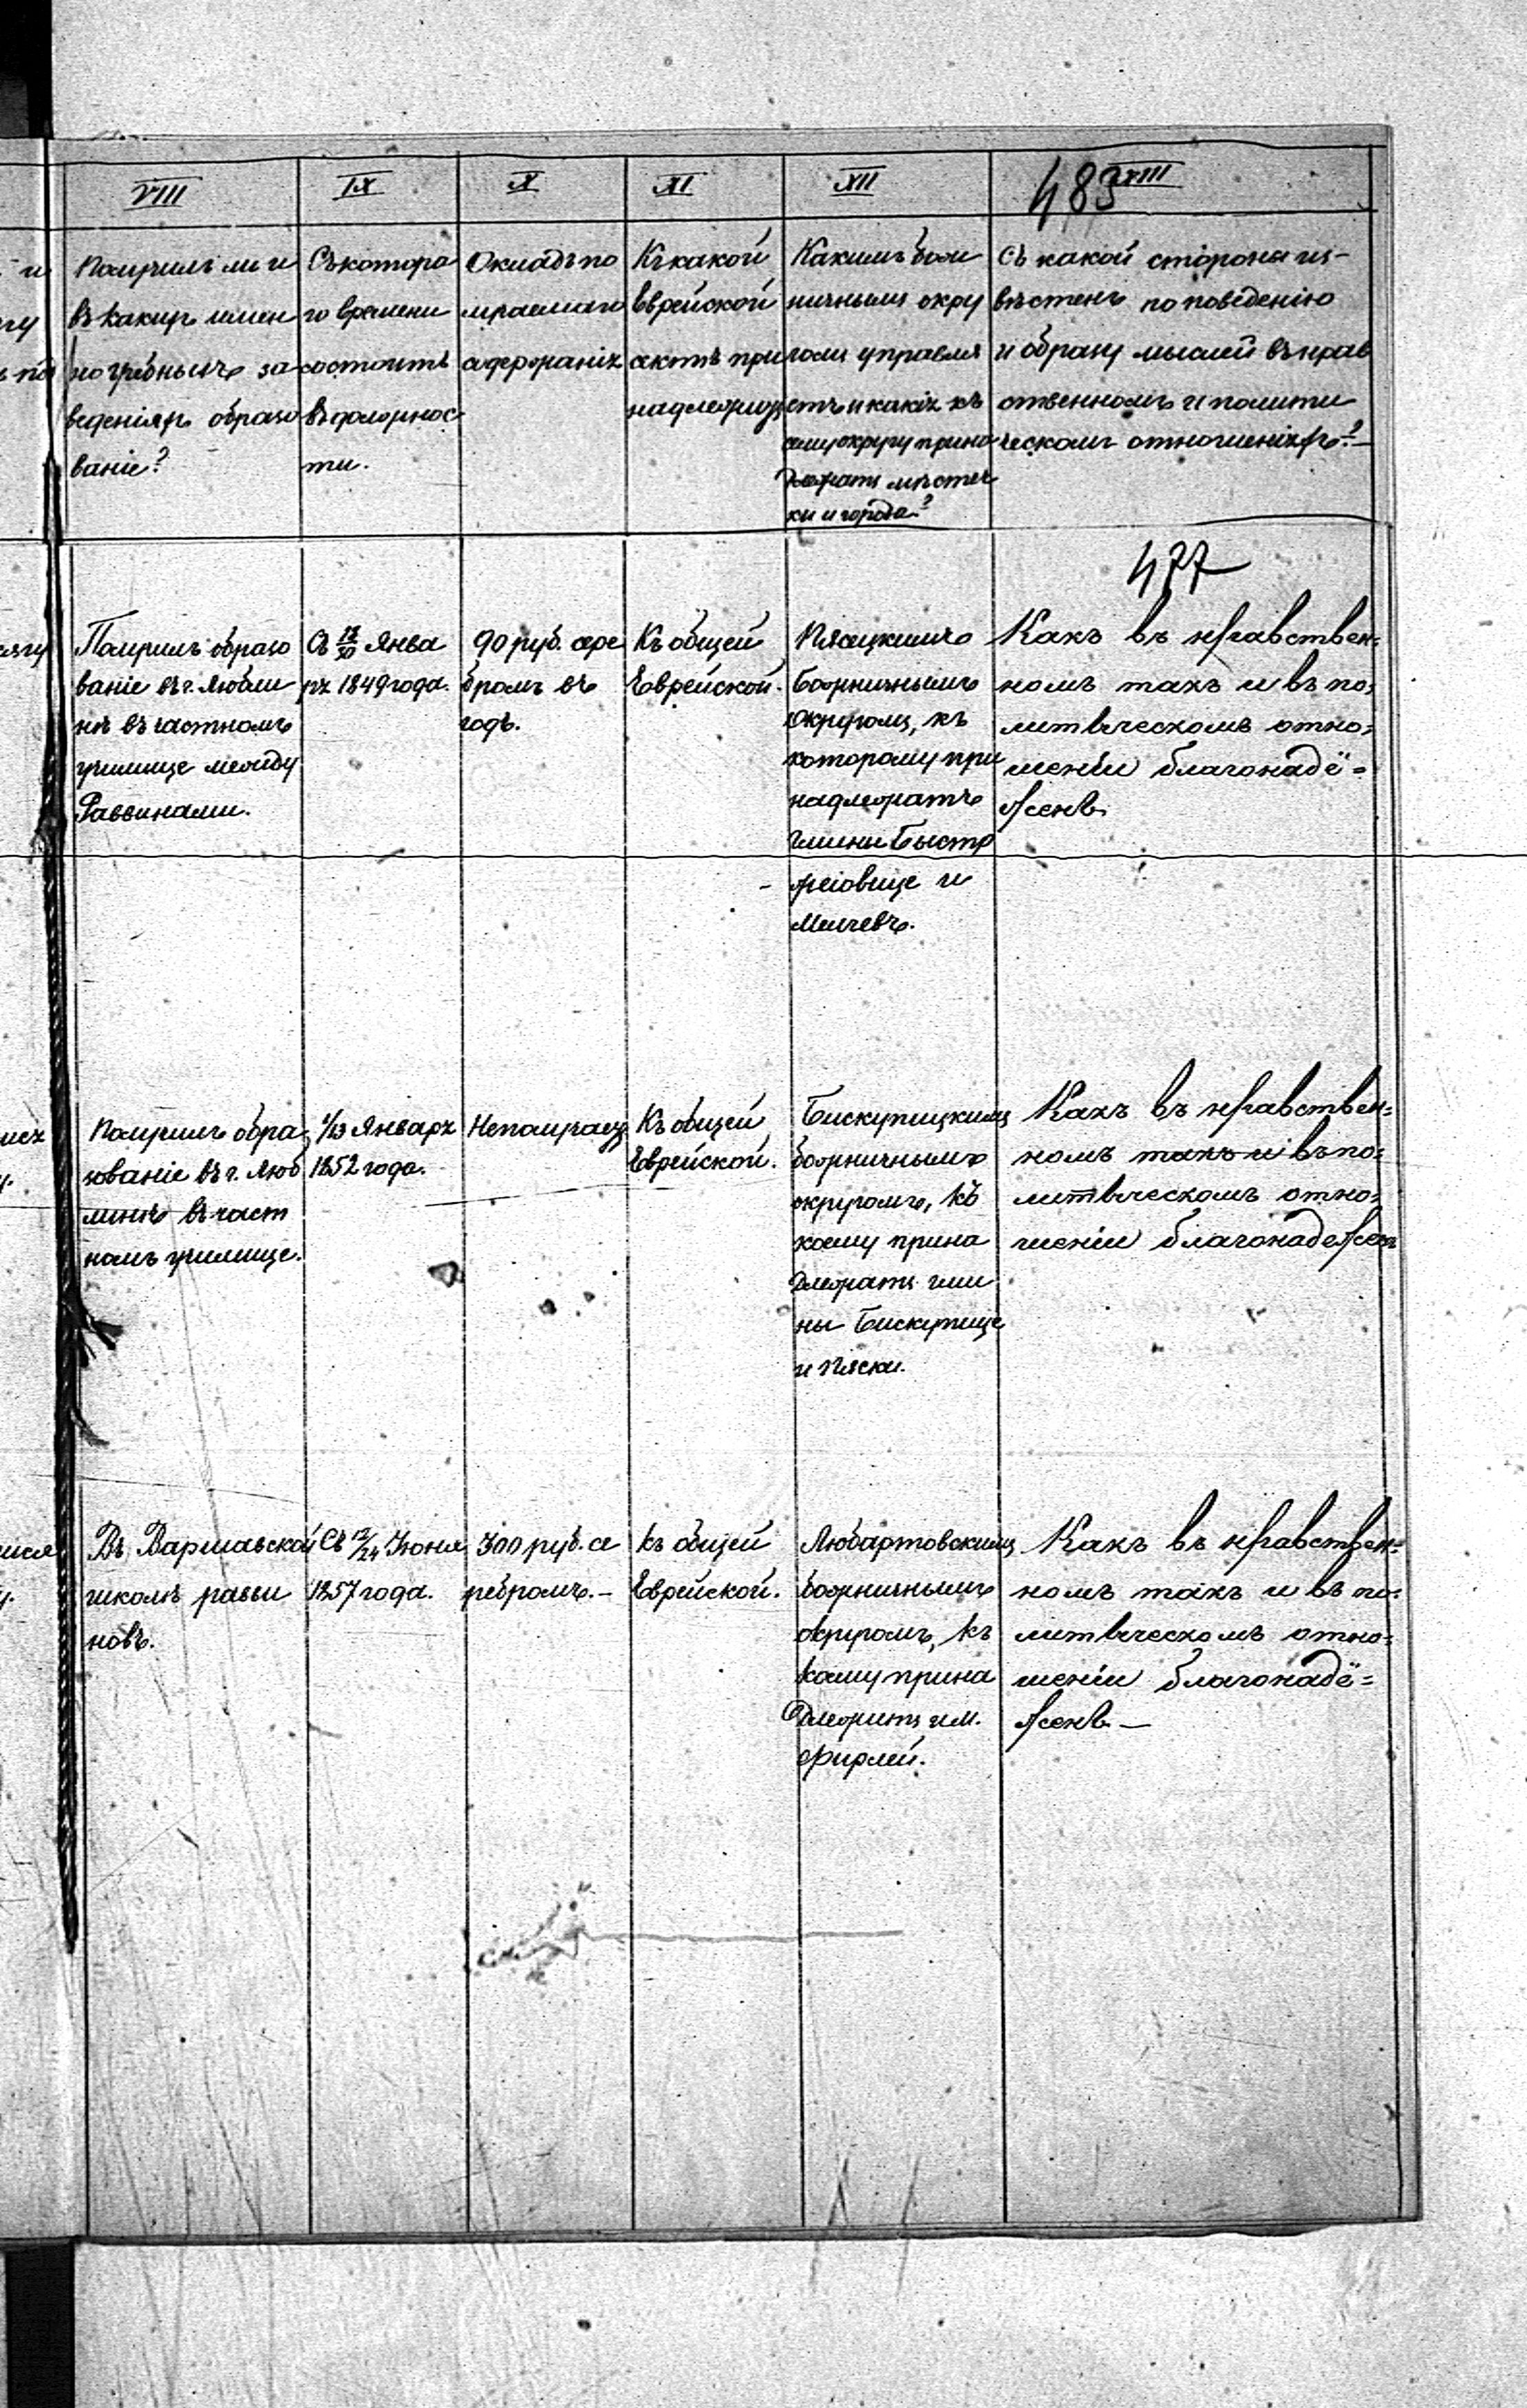 VIII
Получилъ ли и
въ какихъ имен
но учебныхъ за
веденіяхъ образо
ваніе?
IX
Съ котора
го времени
состоитъ
въ должнос
ти.
X
Окладъ по
лучаемаго
содержанія
XI
Къ какой
Еврейской
сектѣ при
надлежитъ
XII
Какимъ бож
ничнымъ окру
гомъ управля
етъ и какія къ
сему округу прина
длежатъ мѣстеч
ки и города?
483 XIII
Съ какой стороны из-
вѣстенъ по поведенію
и образу мыслей въ нрав
ственномъ и полити
ческомъ отношеніяхъ?
477
Получилъ образо
ваніе въ г. Любли
нѣ въ частномъ
училище между
Раввинами.
Съ 18/30 Янва
ря 1849 года.
90 руб. сере
бромъ въ
годъ.
Къ общей
Еврейской.
Пясецкимъ
Божничнымъ
Округомъ, къ
которому при
надлежатъ
гмины Быстр
жеіовице и
Мелгевъ.
Какъ въ нравствен=
номъ такъ и въ по=
литическомъ отно=
шеніи благонадё=
женъ.
Получилъ обра
зованіе въ г. Люб
линѣ въ част
номъ училище.
1/13 Января
1852 года.
Неполучаетъ
Къ общей
Еврейской.
Бискупицкимъ
божничнымъ
округомъ, къ
коему прина
длежатъ гми
ны Бискупице
и Пяски.
Какъ въ нравствен=
номъ такъ и въ по=
литическомъ отно=
шеніи благонадежен
Въ Варшавской
школѣ равви
новъ.
Съ 12/24 Іюня
1857 года.
300 руб. се
ребромъ. –
Къ общей
Еврейской.
Любартовскимъ
божничнымъ
округомъ, къ
коему прина
длежитъ гм.
Фирлей.
Какъ въ нравствен=
номъ такъ и въ по=
литическомъ отно=
шеніи благонадё=
женъ –